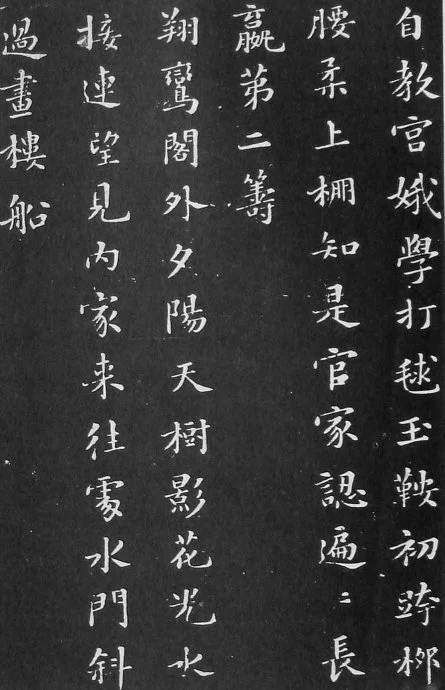 自教宮娥學打毬玉鞍初跨柳
腰柔上棚知是官家認遍〻長
贏第二籌
翔鸞閣外夕陽天樹影花光水
接連望見内家来往處水門斜
過畫樓船